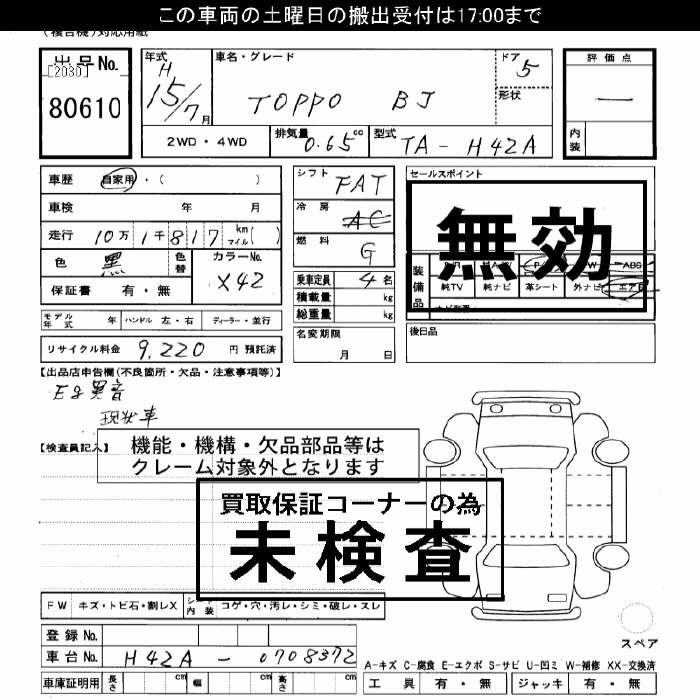 この車両の土曜日の搬出受付は17:00まで
(複合機)対応用紙
出品No.
[2030]
80610
年式
H
15/7月
車名・グレード
TOPPO BJ
ドア
5
形状
評価点
一
内装
2WD・4WD
排気量
0.65cc
型式
TA-H42A
車歴 自家用・( )
車検 年 月
走行 10万1千817 km マイル( )
色 黒
色替
カラーNo.
X42
保証書 有・無
シフト
FAT
冷房
AC
燃料
G
乗車定員 4名
積載量 kg
総重量 kg
セールスポイント
無効
装備品
ABS
純TV 純ナビ 革シート 外ナビ エアB
モデル年式 年 ハンドル 左・右 ディーラー・並行
名変期限
月 日
後日品
リサイクル料金 9,220 円 預託済
【出品店申告欄(不良箇所・欠品・注意事項等)】
Eg異音
現状車
【検査員記入】
機能・機構・欠品部品等は
クレーム対象外となります
買取保証コーナーの為
未検査
FW キズ・トビ石・割レX シート内装 コゲ・穴・汚レ・シミ・破レ・スレ
スペア
登録No.
車台No. H42A-0708372
A-キズ C-腐食 E-エクボ S-サビ U-凹ミ W-補修 XX-交換済
車庫証明用 長さ cm 幅 cm 高さ cm
工具 有・無 ジャッキ 有・無